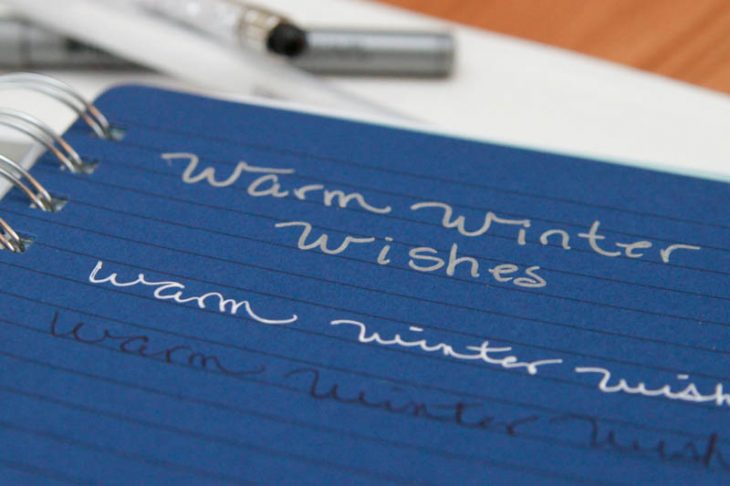 Warm Winter
Wishes
warm winter wish
warm winter wish